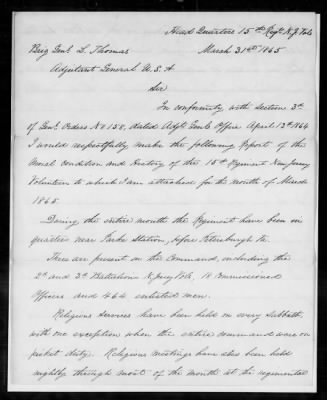 Head Quarters 15th Regt. N.J. Vols
March 31st 1865
Brig Genl. L. Thomas
Adjutant General U.S.A.
Sir
In conformity with section 3rd
of Genl. Orders No 158, dated Adjt. Genl's Office April 13th 1864
I would respectfully make the following Report of the
Moral condition and History of the 15th Regiment New Jersey
Volunteers to which I am attached for the month of March
1865.
During the entire month the Regiment have been in
quarters near Parke Station, before Petersburgh Va.
There are present in the Command, including the
2d and 3d Battalions N. Jersey Vols, 18 Commissioned
Officers and 464 enlisted men.
Religious Services have been held on every Sabbath,
with one exception when the entire command were on
picket duty. Religious meetings have also been held
nightly through most of the month at the regimental